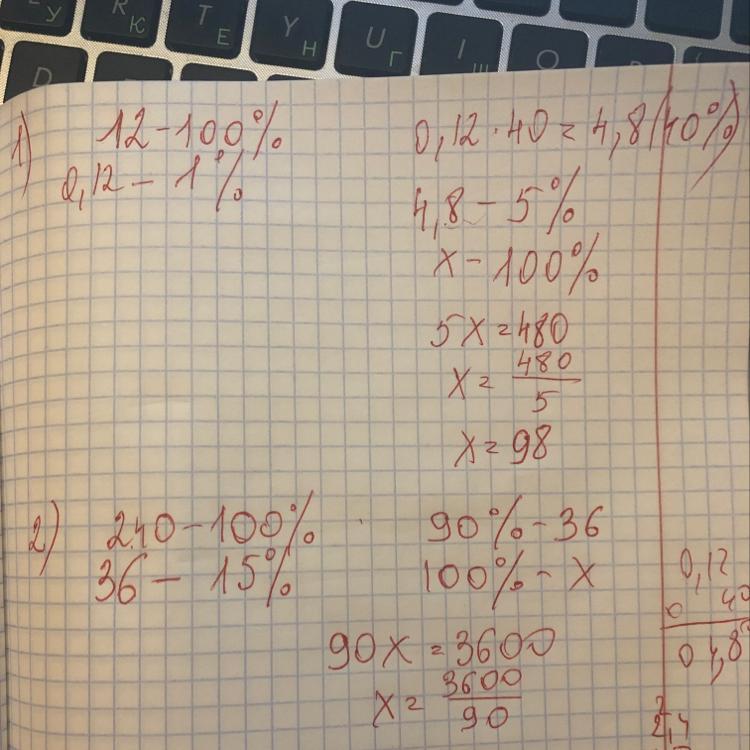 У
R К
T Е
Y Н
U Г
I Ш
O
D
1)
12 - 100%
0,12 - 1%
0,12 · 40 = 4,8 (40%)
4,8 - 5%
x - 100%
5x = 480
x = 480/5
x = 98
2)
240 - 100%
36 - 15%
90% - 36
100% - x
90x = 3600
x = 3600/90
0,12
40
04,8